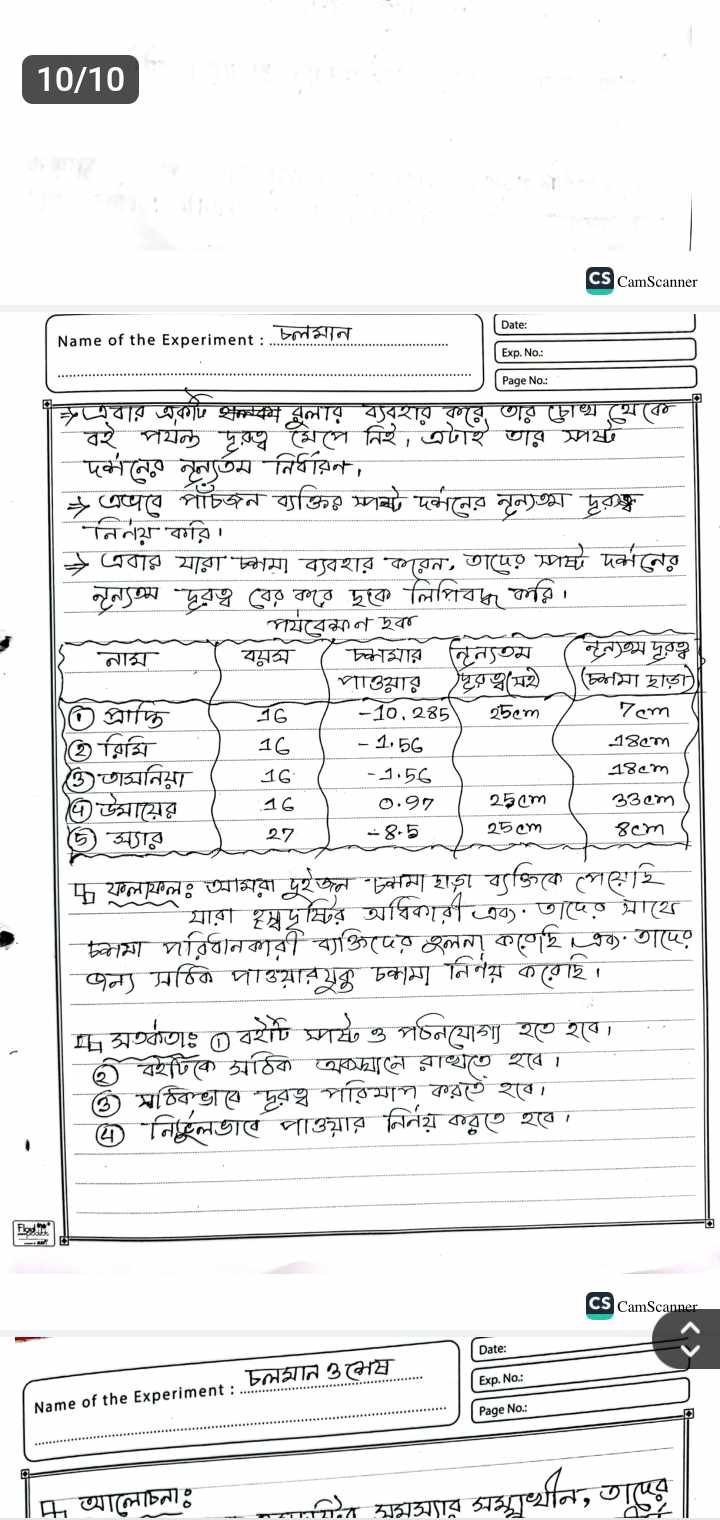 10/10
CS CamScanner
Name of the Experiment : চলমান
Date:
Exp. No.:
Page No.:
⇒ এবার একটি রুলার ব্যবহার করে তার চোখ থেকে
বই পর্যন্ত দূরত্ব মেপে নিই, এটাই তার স্পষ্ট
দর্শনের নূন্যতম নির্ধারন,
⇒ এভাবে পাঁচজন ব্যক্তির স্পষ্ট দর্শনের নূন্যতম দূরত্ব
নির্নয় করি।
⇒ এবার যারা চশমা ব্যবহার করেন, তাদের স্পষ্ট দর্শনের
নূন্যতম দূরত্ব বের করে ছকে লিপিবদ্ধ করি।
পর্যবেক্ষণ ছক
নাম বয়স চশমার পাওয়ার নূন্যতম দূরত্ব(সহ) নূন্যতম দূরত্ব (চশমা ছাড়া)
① প্রাপ্তি 16 -10.285 25cm 7cm
② রিমি 16 -1.56 18cm
③ তাসনিয়া 16 -1.56 18cm
④ উমায়ের 16 0.97 25cm 33cm
⑤ স্যার 27 -8.5 25cm 8cm
ফলাফলঃ আমরা দুইজন চশমা ছাড়া ব্যক্তিকে পেয়েছি
যারা হ্রস্বদৃষ্টির অধিকারী এবং তাদের সাথে
চশমা পরিধানকারী ব্যক্তিদের তুলনা করেছি। এবং তাদের
জন্য সঠিক পাওয়ারযুক্ত চশমা নির্ণয় করেছি।
সতর্কতাঃ ① বইটি স্পষ্ট ও পঠনযোগ্য হতে হবে।
② বইটিকে সঠিক রাখতে হবে।
③ সঠিকভাবে দূরত্ব পরিমাপ করতে হবে।
④ নির্ভুলভাবে পাওয়ার নির্নয় করতে হবে।
CS CamScanner
Name of the Experiment : চলমান ও শেষ
Date:
Exp. No.:
Page No.:
আলোচনাঃ
সমস্যার সম্মুখীন, তাদের